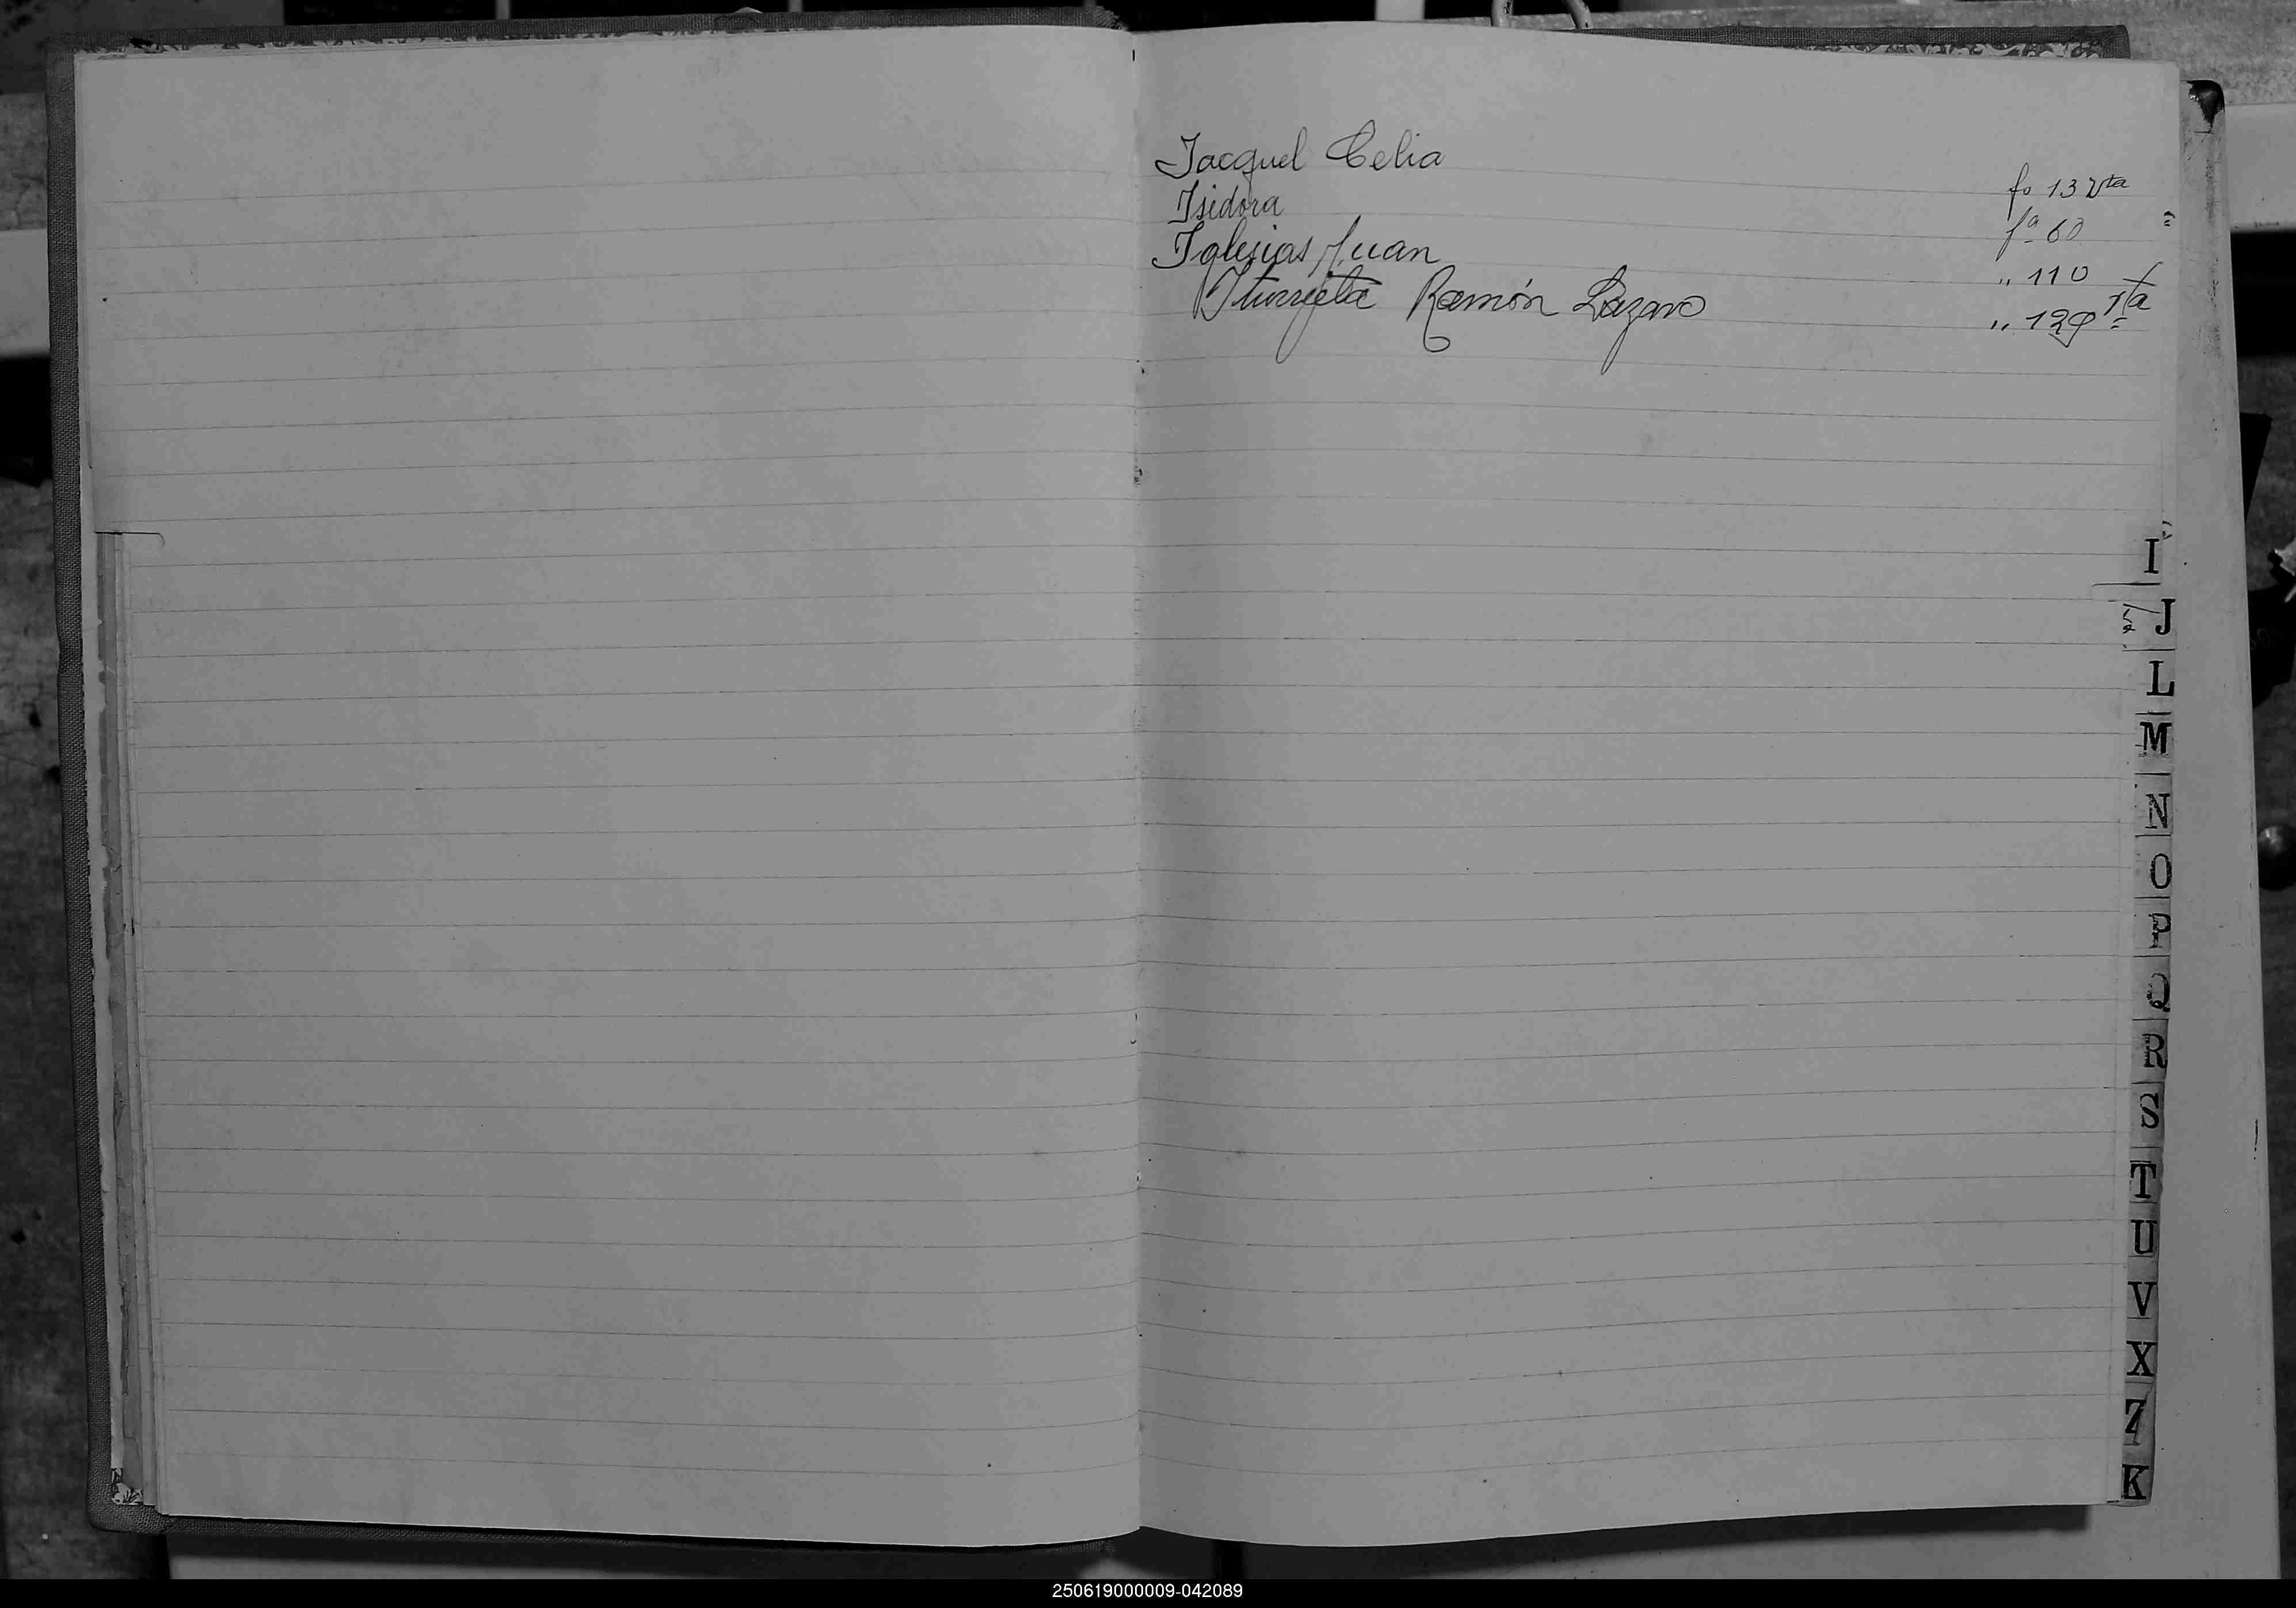 Jacquel Celia fo 13 Vta
Isidora fª 60
Iglesias Juan „ 110
Iturrieta Ramón Lázaro „ 129 Vta
I
J
L
M
N
O
P
Q
R
S
T
U
V
X
Z
K
250619000009-042089